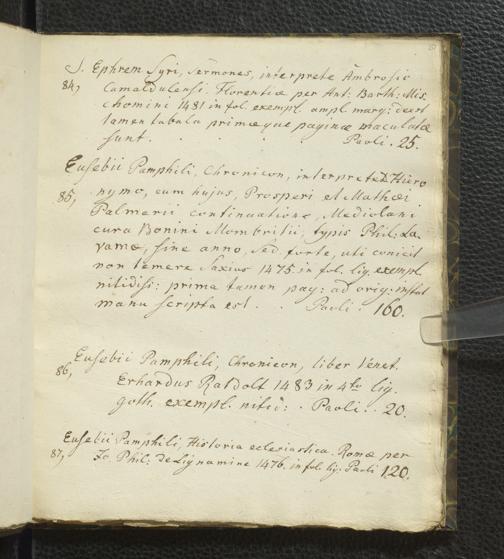 S. Ephrem Syri, Sermones, interprete Ambrosio
84, Camaldulensi. Florentiae per Ant: Barth: Mis
chomini 1481 in fol. exempl. ampl. marg: deest
tamen tabula primaeque paginae maculatae
sunt. Paoli. 25.
Eusebii Pamphili, Chronicon, interprete D. Hiero
85, nymo, cum hujus, Prosperi et Mathaei
Palmerii continuatione, Mediolani
cura Bonini Mombritii, typis Phil: La
vaniae, sine anno, sed forte, uti conicit
non temere Saxius 1475 in fol. lig. exempl.
nitidiss: prima tamen pag: ad orig: instar
manu scripta est. Paoli: 160.
Eusebii Pamphili, Chronicon, liber Venet.
86, Erhardus Ratdolt 1483 in 4to lig.
goth. exempl. nitid: Paoli. 20.
Eusebii Pamphili, Historia eclesiastica. Romae per
87, Jo. Phil: de Lignamine 1476. in fol. lig: Paoli 120.